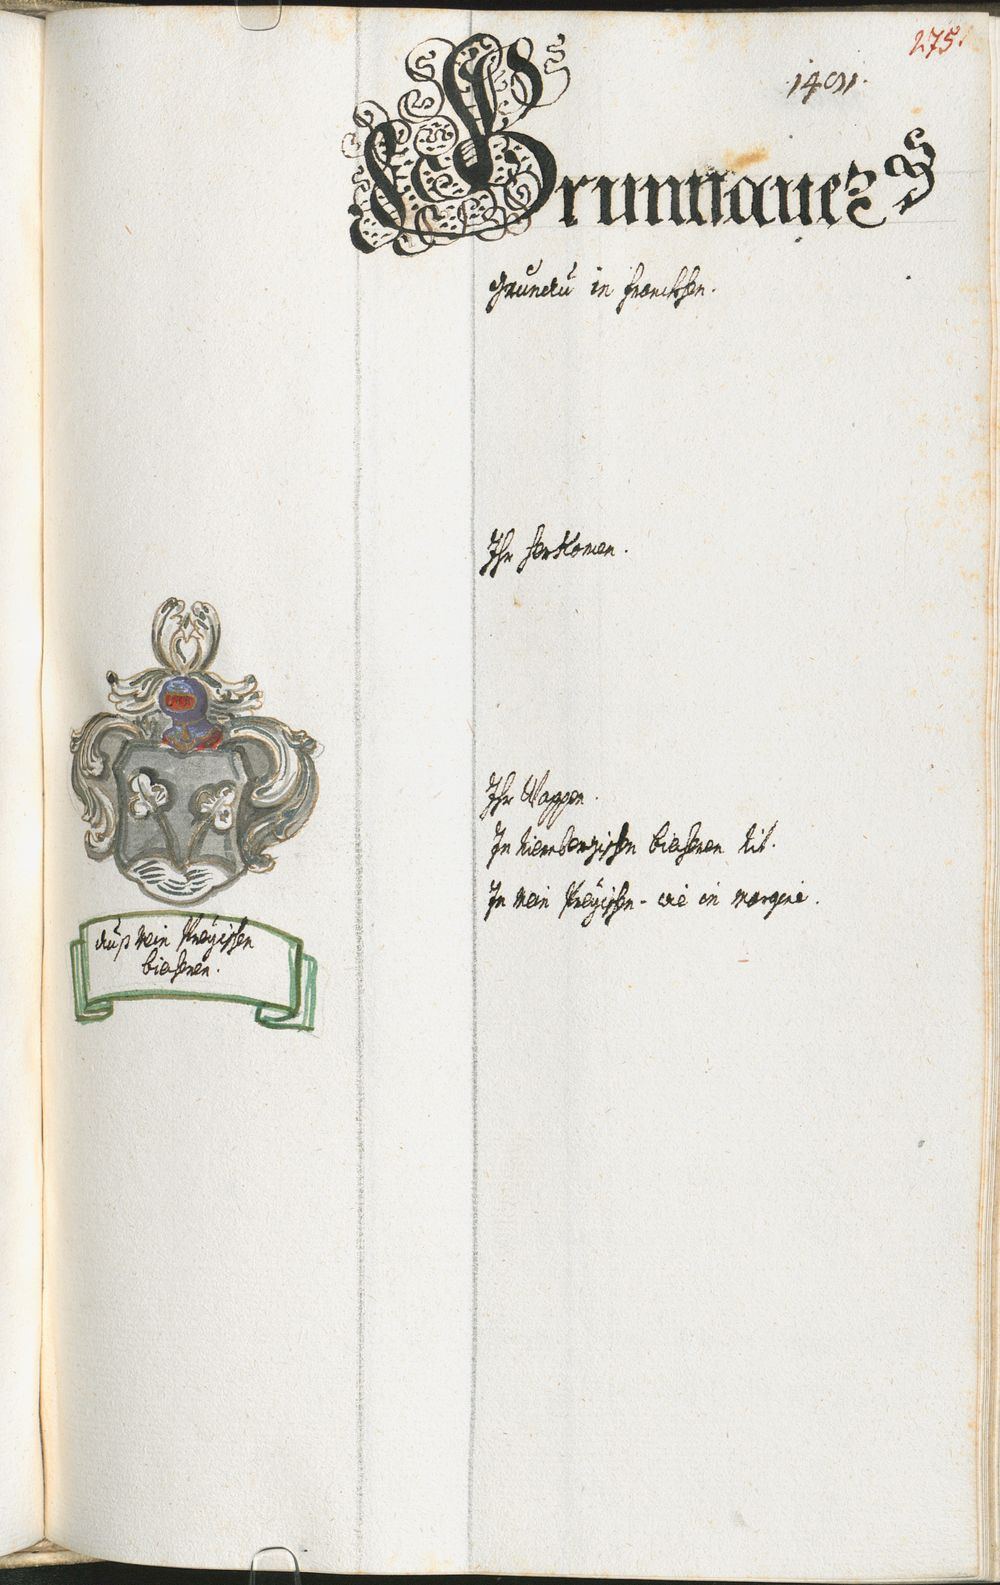 275.
1491.
Grunnauer
Grunau in franckhen.
Ihr herkomen.
Ihr Wappen.
In Niernbergischen biechern Nit.
In Mein Preÿischen - wie in margine.
Auß Mein Preÿischen
biechern.